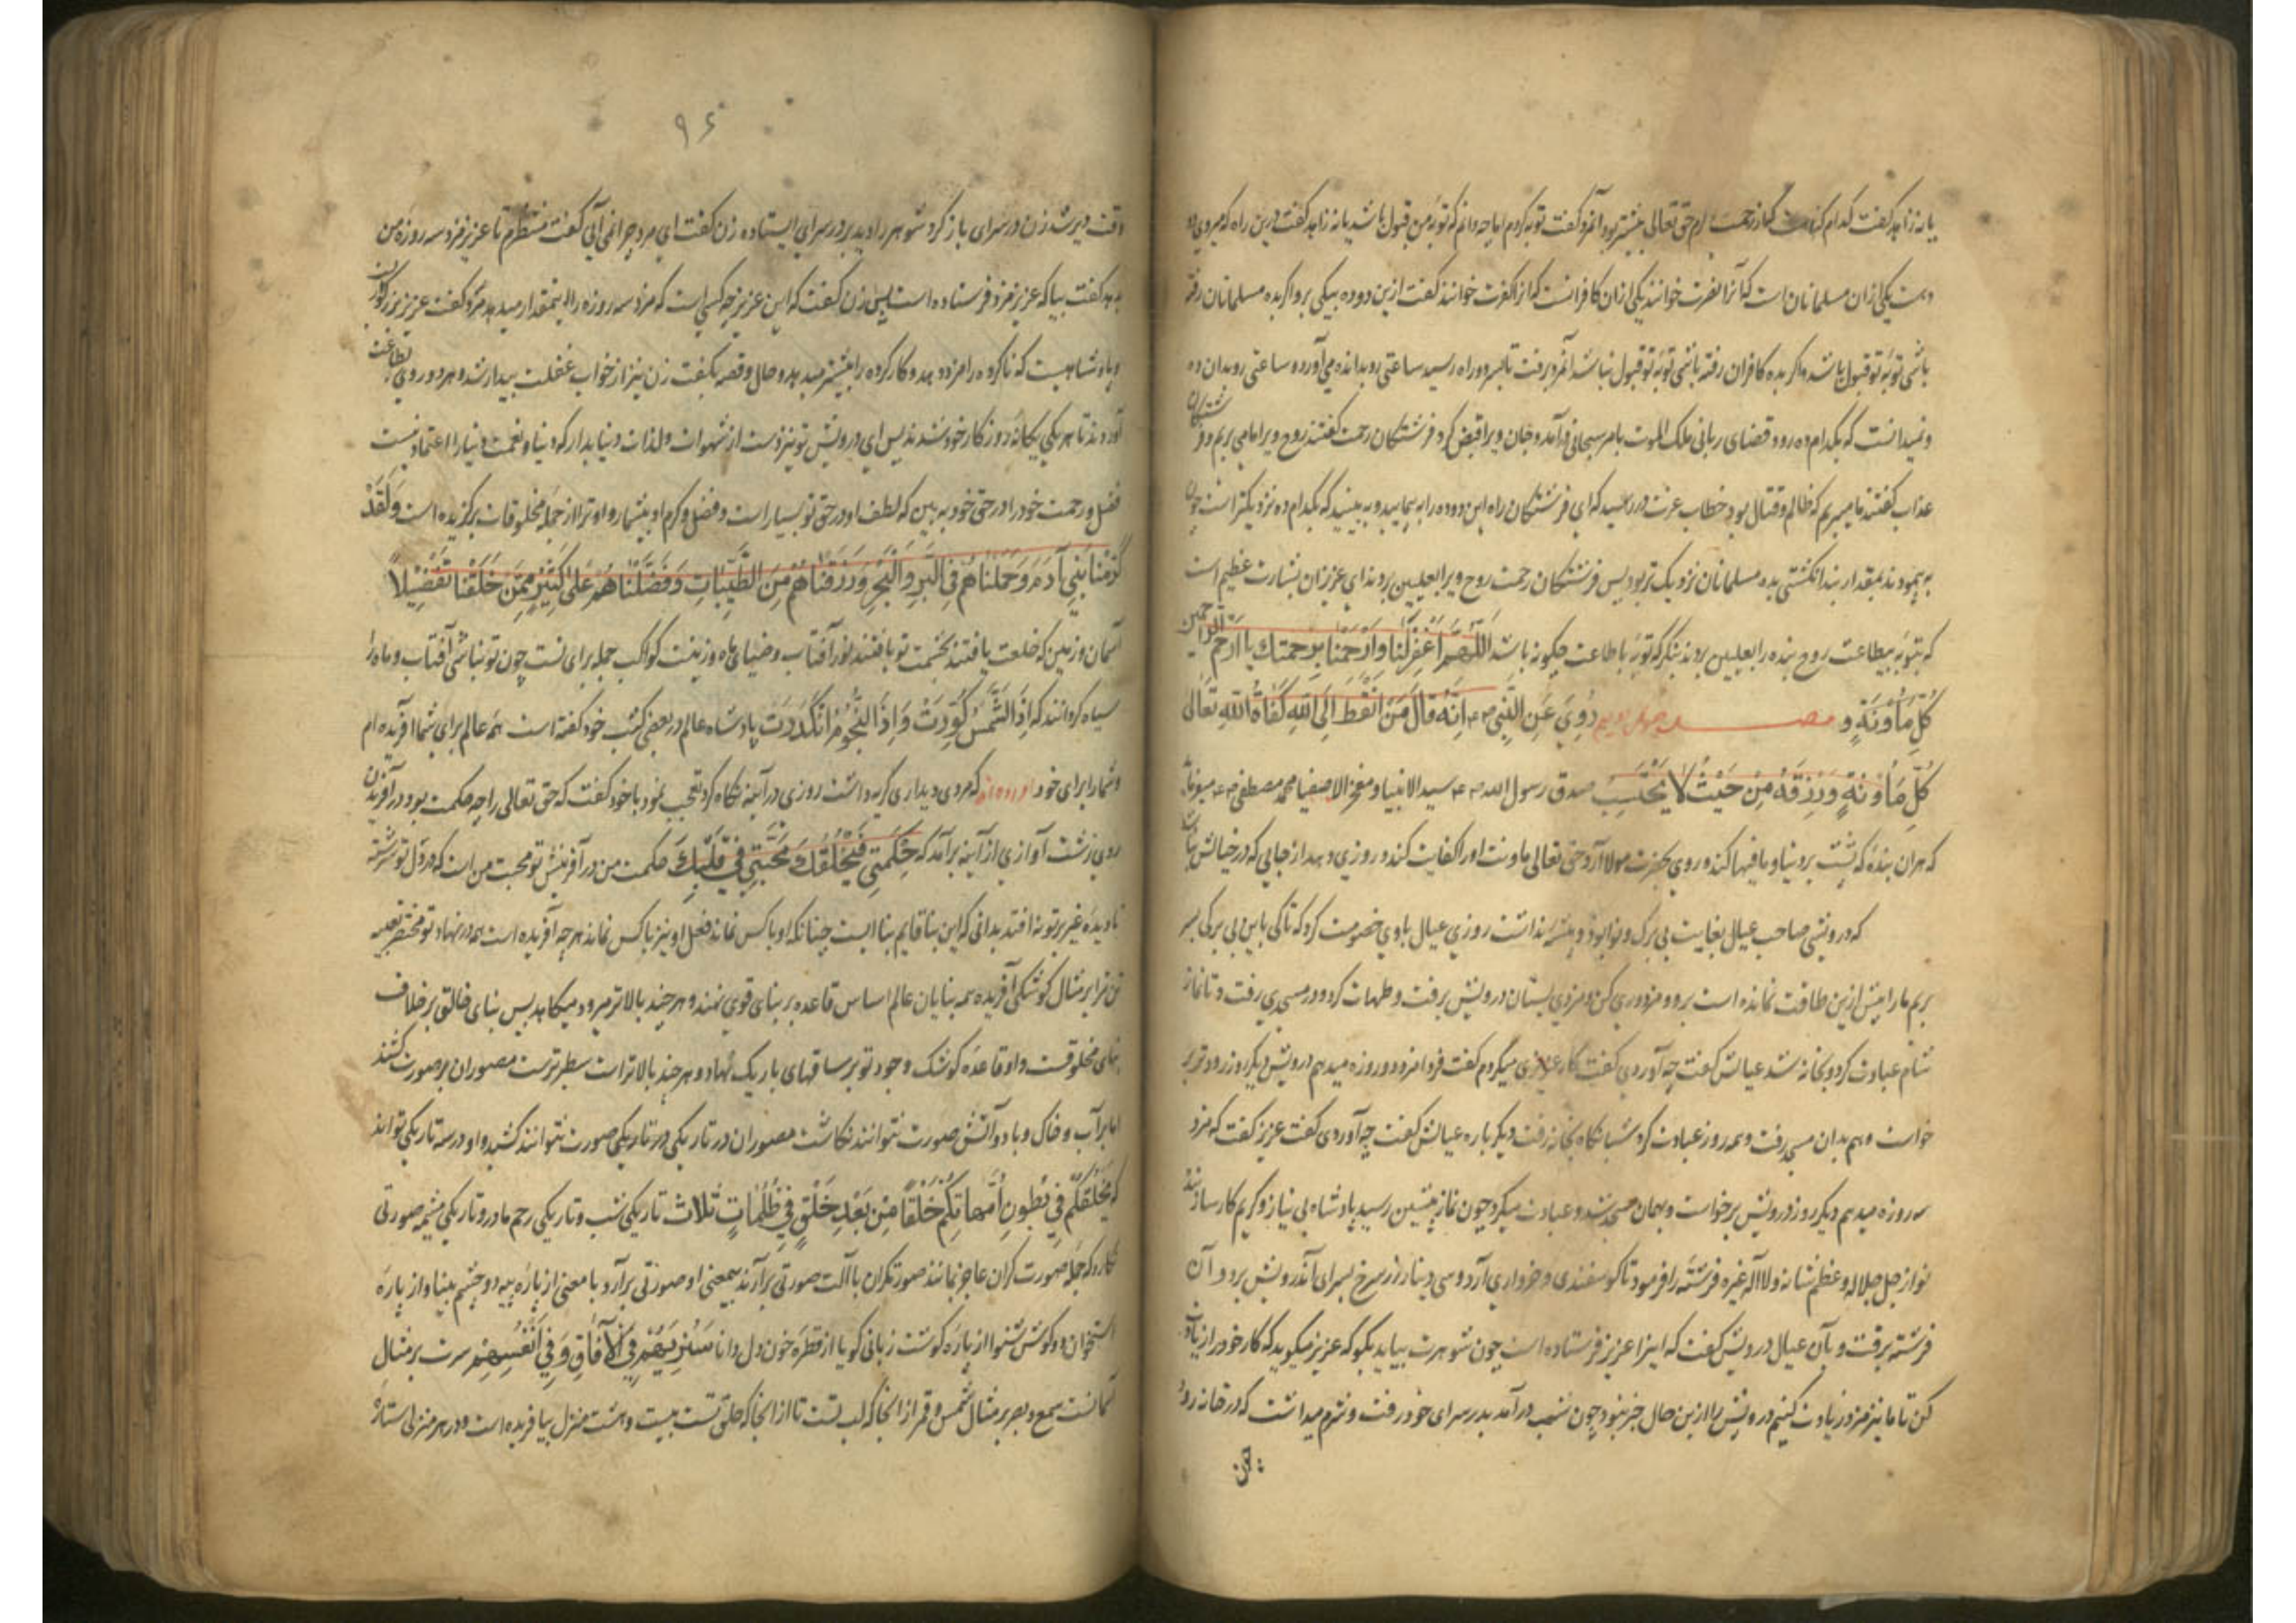 یا نه زاهد گفت کدام گناهست که از رحمت حق تعالی بیشتر بود آنمرد گفت توبه کردم اما چه دانم که توبه من قبول باشد یا نه زاهد گفت درین راه که میروی دو
دهست یکی ازان مسلمانان است که آنرا نصرت خوانند یکی ازان کافرانست که آنرا کفرت خوانند گفت ازین دو ده بیکی برو اگر بده مسلمانان رفته
باشی توبه تو قبول باشد و اگر بده کافران رفته باشی توبه تو قبول نباشد آنمرد برفت تا بسر دو راه رسید ساعتی رو بدانده می آورد و ساعتی رو بدان ده
و نمیدانست که بکدام ده رود قضای ربانی ملک الموت بامر سبحانی فرآمد و جان ویرا قبض کرد فرشتگان رحمت گفتند روح ویرا ما می بریم و فرشتگان
عذاب گفتند ما میبریم که ظالم و قتال بود خطاب عزت در رسید که ای فرشتگان راه این دو ده را به پیمایید و به بینید که بکدام ده نزدیکتر است چون
به پیمودند بمقدار بند انگشتی بده مسلمانان نزدیک تر بود پس فرشتگان رحمت روح ویرا بعلیین بردند ای عزیزان بشارت عظیم است
که بتوبه بیطاعت روح بنده را بعلیین برند بنگر که توبه با طاعت چگونه باشد اَللّٰهُمَّ اغْفِرْلَنَا وَارْحَمْنَا بِرَحْمَتِكَ يَا اَرْحَمَ الرَّاحِمِين
كُلَّ مَأُونَةٍ و رُوِيَ عَنِ النَّبِيِّ اِنَّهُ قَالَ مَنِ انْقَطَعَ اِلَى اللهِ كَفَاهُ اللهُ تَعَالٰى
كُلَّ مَأُونَةٍ وَرَزَقَهُ مِنْ حَيْثُ لَا يَحْتَسِبُ صدق رسول الله سید الانبیا و مفخر الاصفیا محمد مصطفی میفرماید
که هر ان بنده که پشت بر دنیا و مافیها کند و روی بحضرت مولا آرد حق تعالی ماونت او را کفایت کند و روزی دهد از جایی که در خیالش نباشد
که درویشی صاحب عیال بغایت بی برک و نوا بود و پیشه نداشت روزی عیال با وی خصومت کرد که تا کی باین بی برکی بسر
بریم ما را بیش ازین طاقت نمانده است برو و مزدوری کن و مزدی بستان درویش برفت و طهارت کرد و در مسجدی رفت و تا نماز
شام عبادت کرد و بخانه شد عیالش گفت چه آوردی گفت کار عزیزی میکردم گفت فردا مزد دو روزه میدهم درویش دیگر روز زودتر بر
خواست و هم بدان مسجد رفت و همه روز عبادت کرد شبانگاه بخانه رفت دیگر باره عیالش گفت چه آوردی گفت عزیز گفت که مزد
سه روزه میدهم دیگر روز درویش برخواست و بهمان مسجد شد و عبادت میکرد چون نماز پیشین رسید پادشاه بی نیاز و کریم کار ساز بنده
نواز جل جلاله و عظم شانه و لا اله غیره فرشته را فرمود تا گوسفندی و خرواری آرد و سی دینار زر سرخ بسرای آندرویش برد و آن
فرشته برفت و بآن عیال درویش گفت که اینرا عزیز فرستاده است چون شوهرت بیاید بگو که عزیز میگوید که کار خود را زیادت
کن تا ما نیز مزد زیادت کنیم درویش را ازین حال خبر نبود چون شب درآمد بدر سرای خود رفت و شرم میداشت که در خانه رود
وقت دیر شد زن در سرای باز کرد شوهر را دید بر در سرای ایستاده زن گفت ای مرد چرا نمی آیی گفت منتظرم تا عزیز مزد سه روزه من
بدهد گفت بیا که عزیز مزد فرستاده است پس زن گفت که این عزیز چه کسی است که مزد سه روزه را اینمقدار میدهد مرد گفت عزیز بزرگوار
و پادشاهیست که ناکرده را مزد دهد و کار کرده را بیشتر میدهد و حال و قصه بگفت زن نیز از خواب غفلت بیدار شد و هر دو روی بطاعت
آوردند تا هر یکی یگانه روزگار خود شدند پس ای درویش تو نیز دست از شهوات و لذات دنیا بدار که دنیا و نعمت دنیا را اعتماد نیست
فضل و رحمت خود را در حق خود به بین که لطف او در حق تو بسیار است و فضل و کرم او بیشمار و او ترا از جمله مخلوقات برگزیده است وَلَقَدْ
كَرَّمْنَا بَنِي آدَمَ وَحَمَلْنَاهُمْ فِي الْبَرِّ وَالْبَحْرِ وَرَزَقْنَاهُمْ مِنَ الطَّيِّبَاتِ وَفَضَّلْنَاهُمْ عَلَى كَثِيرٍ مِمَّنْ خَلَقْنَا تَفْضِيلاً
آسمان و زمین که خلعت یافتند بخشمت تو یافتند نور آفتاب و ضیای ماه و زینت کواکب جمله برای تست چون تو نباشی آفتاب و ماه را
سیاه گردانند که اِذَا الشَّمْسُ كُوِّرَتْ وَاِذَا النُّجُومُ انْكَدَرَتْ پادشاه عالم در بعضی کتب خود گفته است همه عالم برای شما آفریده ام
و شما را برای خود آورده اند که مردی دیداری کریه داشت روزی در آینه نگاه کرد تعجب نمود با خود گفت که حق تعالی را چه حکمت بود در آفریدن
روی زشت آوازی از آینه برآمد که حِكْمَتِي فِي خَلْقِكَ مَحَبَّتِي فِي قَلْبِكَ حکمت من در آفرینش تو محبت من است که در دل تو سرشته
تا دیده غیر بر تو نه افتد بدانی که این بنا قایم بنا ایست چنانکه او با کس نماند فعل او نیز با کس نماند هر چه آفریده است همه در نهاد تو مختصر تعبیه
تن ترا بر مثال کوشکی آفریده همه بنایان عالم اساس قاعده بر بنای قوی نهند و هر چند بالاتر میرود میکاهد پس بنای خالق بر خلاف
بنای مخلوقست و او قاعده کوشک وجود تو بر ساقهای باریک نهاد و هر چند بالاتر است سطبرترست مصوران بر صورت کنند
اما بر آب و خاک و باد و آتش صورت نتوانند نگاشت مصوران در تاریکی در تاریکی صورت نتوانند کشید و او در سه تاریکی تواند
که يَخْلُقُكُمْ فِي بُطُونِ اُمَّهَاتِكُمْ خَلْقًا مِنْ بَعْدِ خَلْقٍ فِي ظُلُمَاتٍ ثَلَاث تاریکی شب و تاریکی رحم مادر و تاریکی مشیمه صورتی
نگارد که جمله صورت گران عاجز بمانند صورتگران با آلت صورتی برآرند بیمعنی او صورتی برآرد با معنی از پاره پیه دو چشم بینا و از پاره
استخوان دو گوش شنوا از پاره گوشت زبانی گویا از قطره خون دل دانا سَنُرِيهِمْ فِي الْآفَاقِ وَفِي اَنْفُسِهِمْ سرت بر مثال
آسمانست سمع و بصر بر مثال شمس و قمر از انجا که لب تست تا از انجا که حلق تست بیست و هشت منزل بیافریده است و در هر منزلی ستاره
۹۶